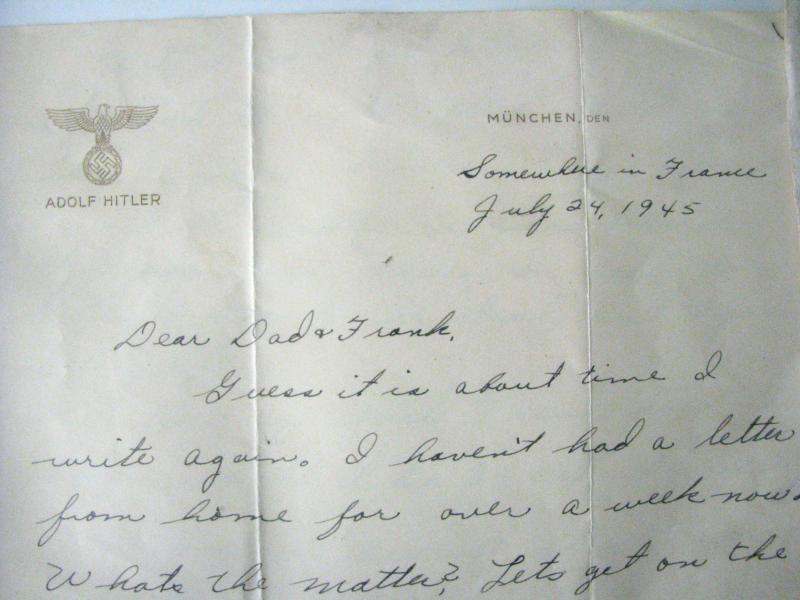 MÜNCHEN, DEN
ADOLF HITLER
Somewhere in France
July 24, 1945
Dear Dad & Frank,
Guess it is about time I
write again. I haven't had a letter
from home for over a week now.
Whats the matter? Lets get on the